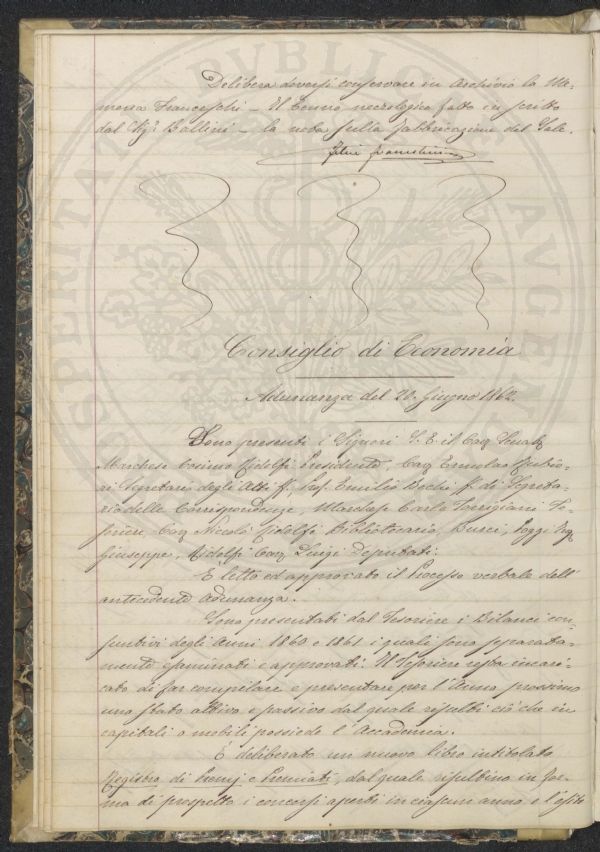 Delibera doversi conservare in Archivio la Me-
moria Franceschi – Il Cenno necrologico fatto in scritto
dal Sig. Ballini – la nota sulla fabbricazione del Sale.
Consiglio di Economia
Adunanza del 20. Giugno 1862.
Sono presenti i Signori S. E. il Cav. Senat.
Marchese Cosimo Ridolfi Presidente, Cav.
Segretario degli Atti, Prof. Emilio Bechi f. di Segreta-
rio delle Corrispondenze, Marchese Carlo Torrigiani Te-
soriere, Cav. Niccolò Ridolfi Bibliotecario, Busci, Poggi
Giuseppe, Ridolfi Cav. Luigi Deputati.
È letto ed approvato il Processo verbale dell'
antecedente adunanza.
Sono presentati dal Tesoriere i Bilanci con-
suntivi degli Anni 1860 e 1861 i quali sono separata-
mente esaminati e approvati. Il Tesoriere resta incari-
cato di far compilare e presentare per l'Anno prossimo
uno stato attivo e passivo dal quale resulti ciò che in
capitali o mobili possiede l'Accademia.
È deliberato un nuovo libro intitolato
Registro di Premj e Premiati, dal quale risultino in for-
ma di prospetto i concorsi aperti in ciascun anno e l'esito
PVBLICAE
PROSPERITATI
AVGENDAE